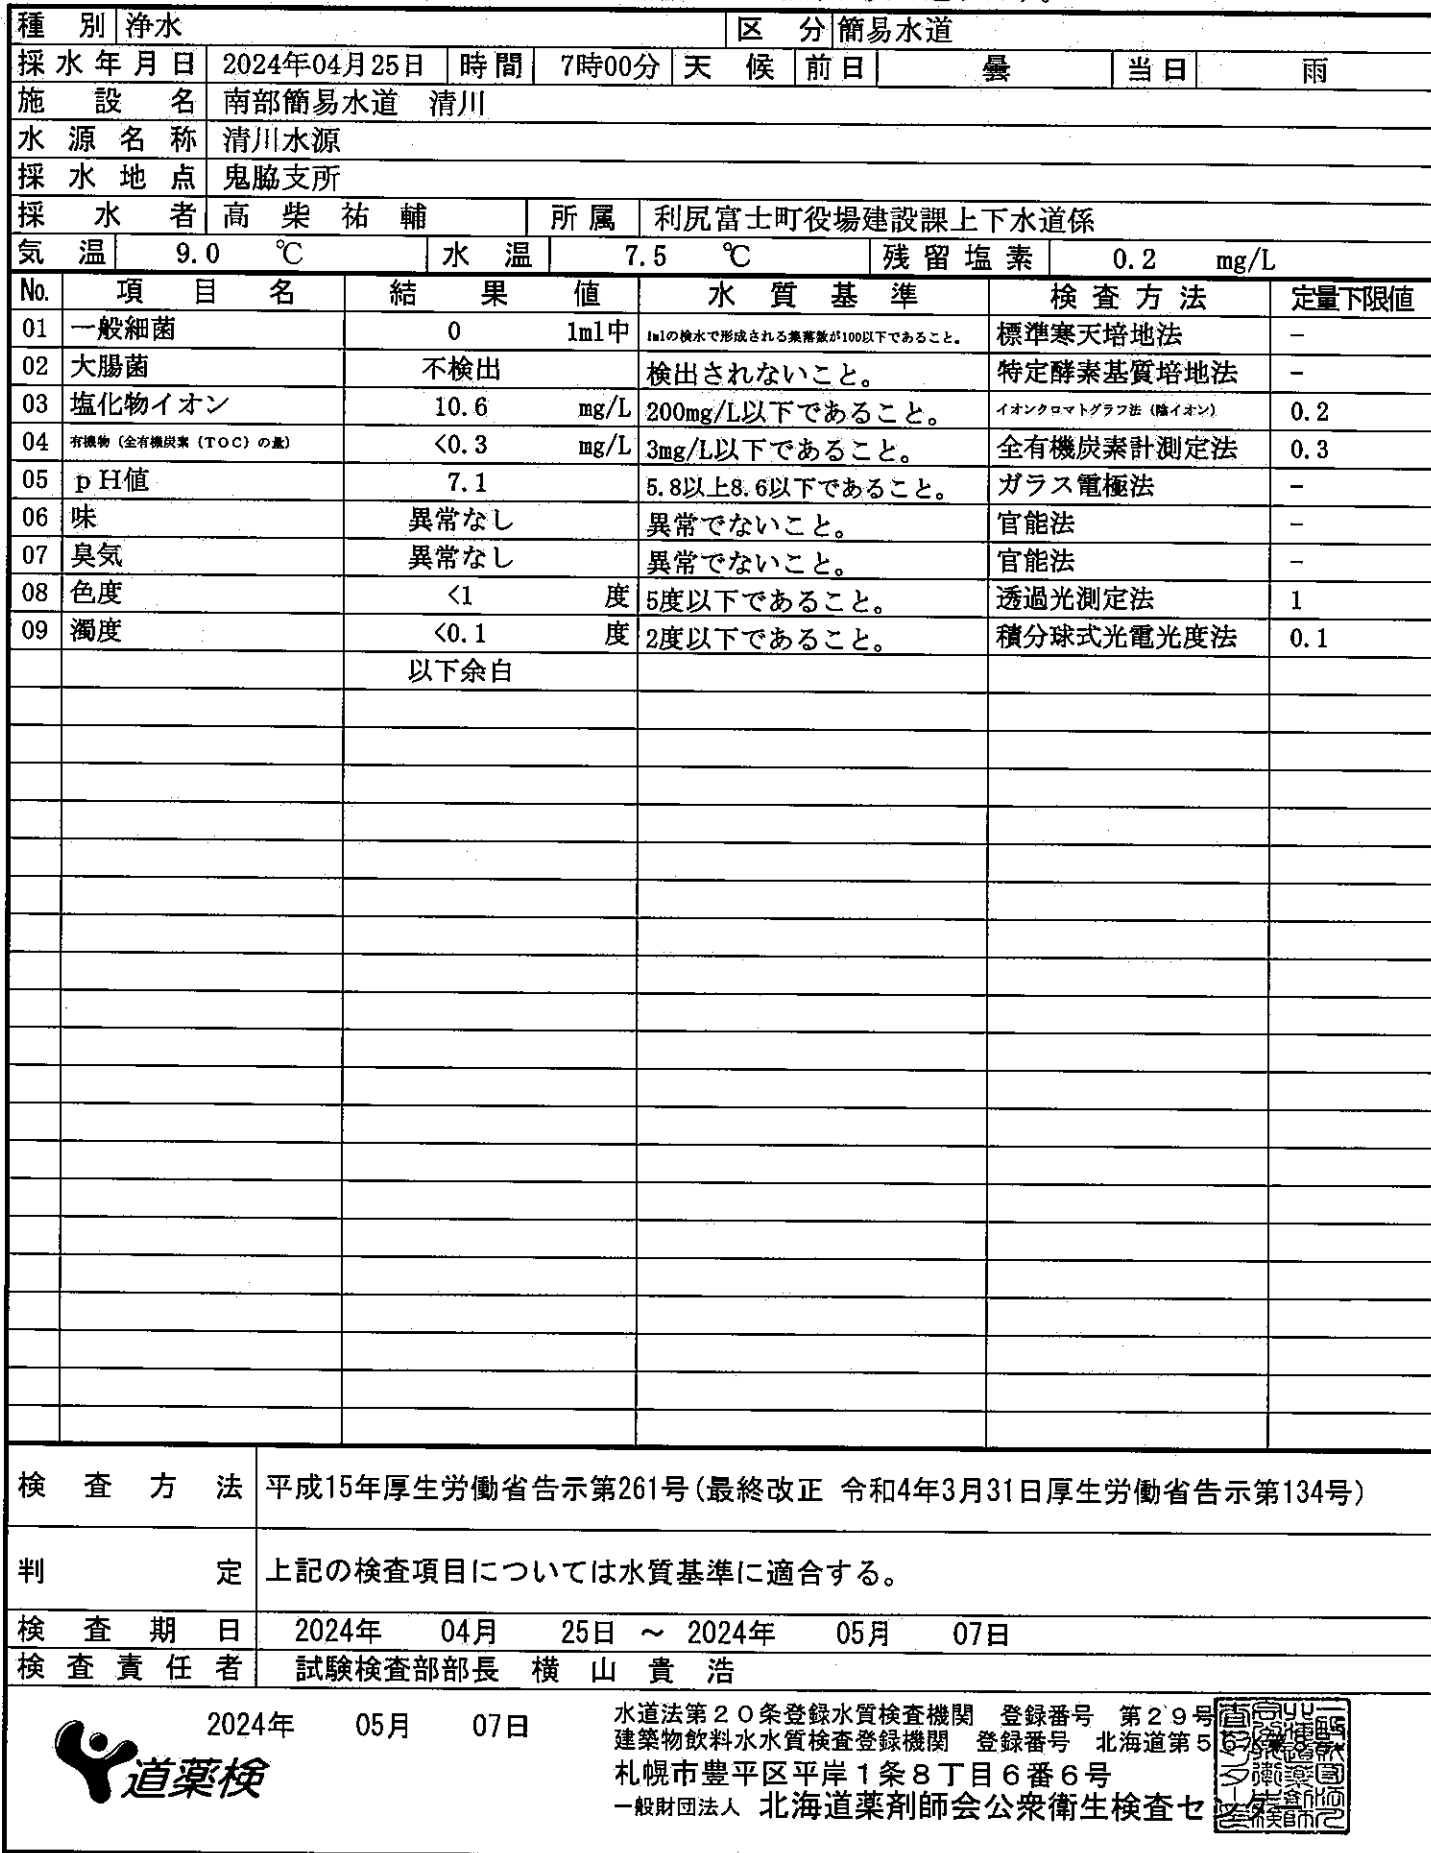 種別 浄水 区分 簡易水道
採水年月日 2024年04月25日 時間 7時00分 天候 前日 曇 当日 雨
施設名 南部簡易水道 清川
水源名称 清川水源
採水地点 鬼脇支所
採水者 高柴祐輔 所属 利尻富士町役場建設課上下水道係
気温 9.0 ℃ 水温 7.5 ℃ 残留塩素 0.2 mg/L
No. 項目名 結果値 水質基準 検査方法 定量下限値
01 一般細菌 0 1ml中 1mlの検水で形成される集落数が100以下であること。 標準寒天培地法 -
02 大腸菌 不検出 検出されないこと。 特定酵素基質培地法 -
03 塩化物イオン 10.6 mg/L 200mg/L以下であること。 イオンクロマトグラフ法(陰イオン) 0.2
04 有機物(全有機炭素(TOC)の量) <0.3 mg/L 3mg/L以下であること。 全有機炭素計測定法 0.3
05 pH値 7.1 5.8以上8.6以下であること。 ガラス電極法 -
06 味 異常なし 異常でないこと。 官能法 -
07 臭気 異常なし 異常でないこと。 官能法 -
08 色度 <1 度 5度以下であること。 透過光測定法 1
09 濁度 <0.1 度 2度以下であること。 積分球式光電光度法 0.1
以下余白
検査方法 平成15年厚生労働省告示第261号(最終改正 令和4年3月31日厚生労働省告示第134号)
判定 上記の検査項目については水質基準に適合する。
検査期日 2024年 04月 25日 ~ 2024年 05月 07日
検査責任者 試験検査部部長 横山貴浩
2024年 05月 07日
道薬検
水道法第20条登録水質検査機関 登録番号 第29号
建築物飲料水水質検査登録機関 登録番号 北海道第5
札幌市豊平区平岸1条8丁目6番6号
一般財団法人 北海道薬剤師会公衆衛生検査セ